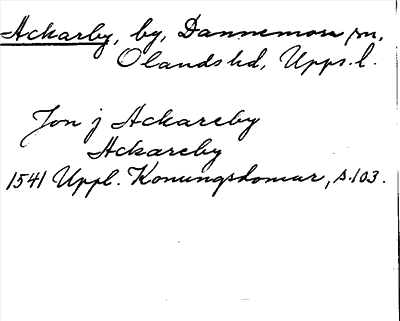 Ackarby, by, Dannemora sn,
Olands hd, Upps. l.
Jon j Ackareby
Ackareby
1541 Uppl. Konungsdomar, s. 103.